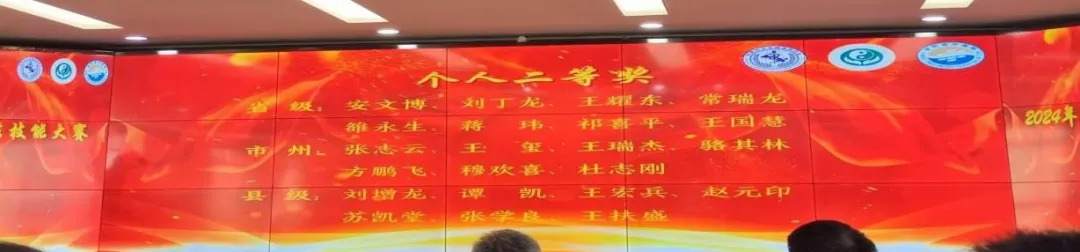 个人二等奖
省级：安文博、刘丁龙、王耀东、常瑞龙
雒永生、蒋玮、祁喜平、王国慧
市州：张志云、王玺、王瑞杰、骆其林
方鹏飞、穆欢喜、杜志刚
县级：刘增龙、谭凯、王宏兵、赵元印
苏凯堂、张学良、王扶盛
技能大赛
2024年